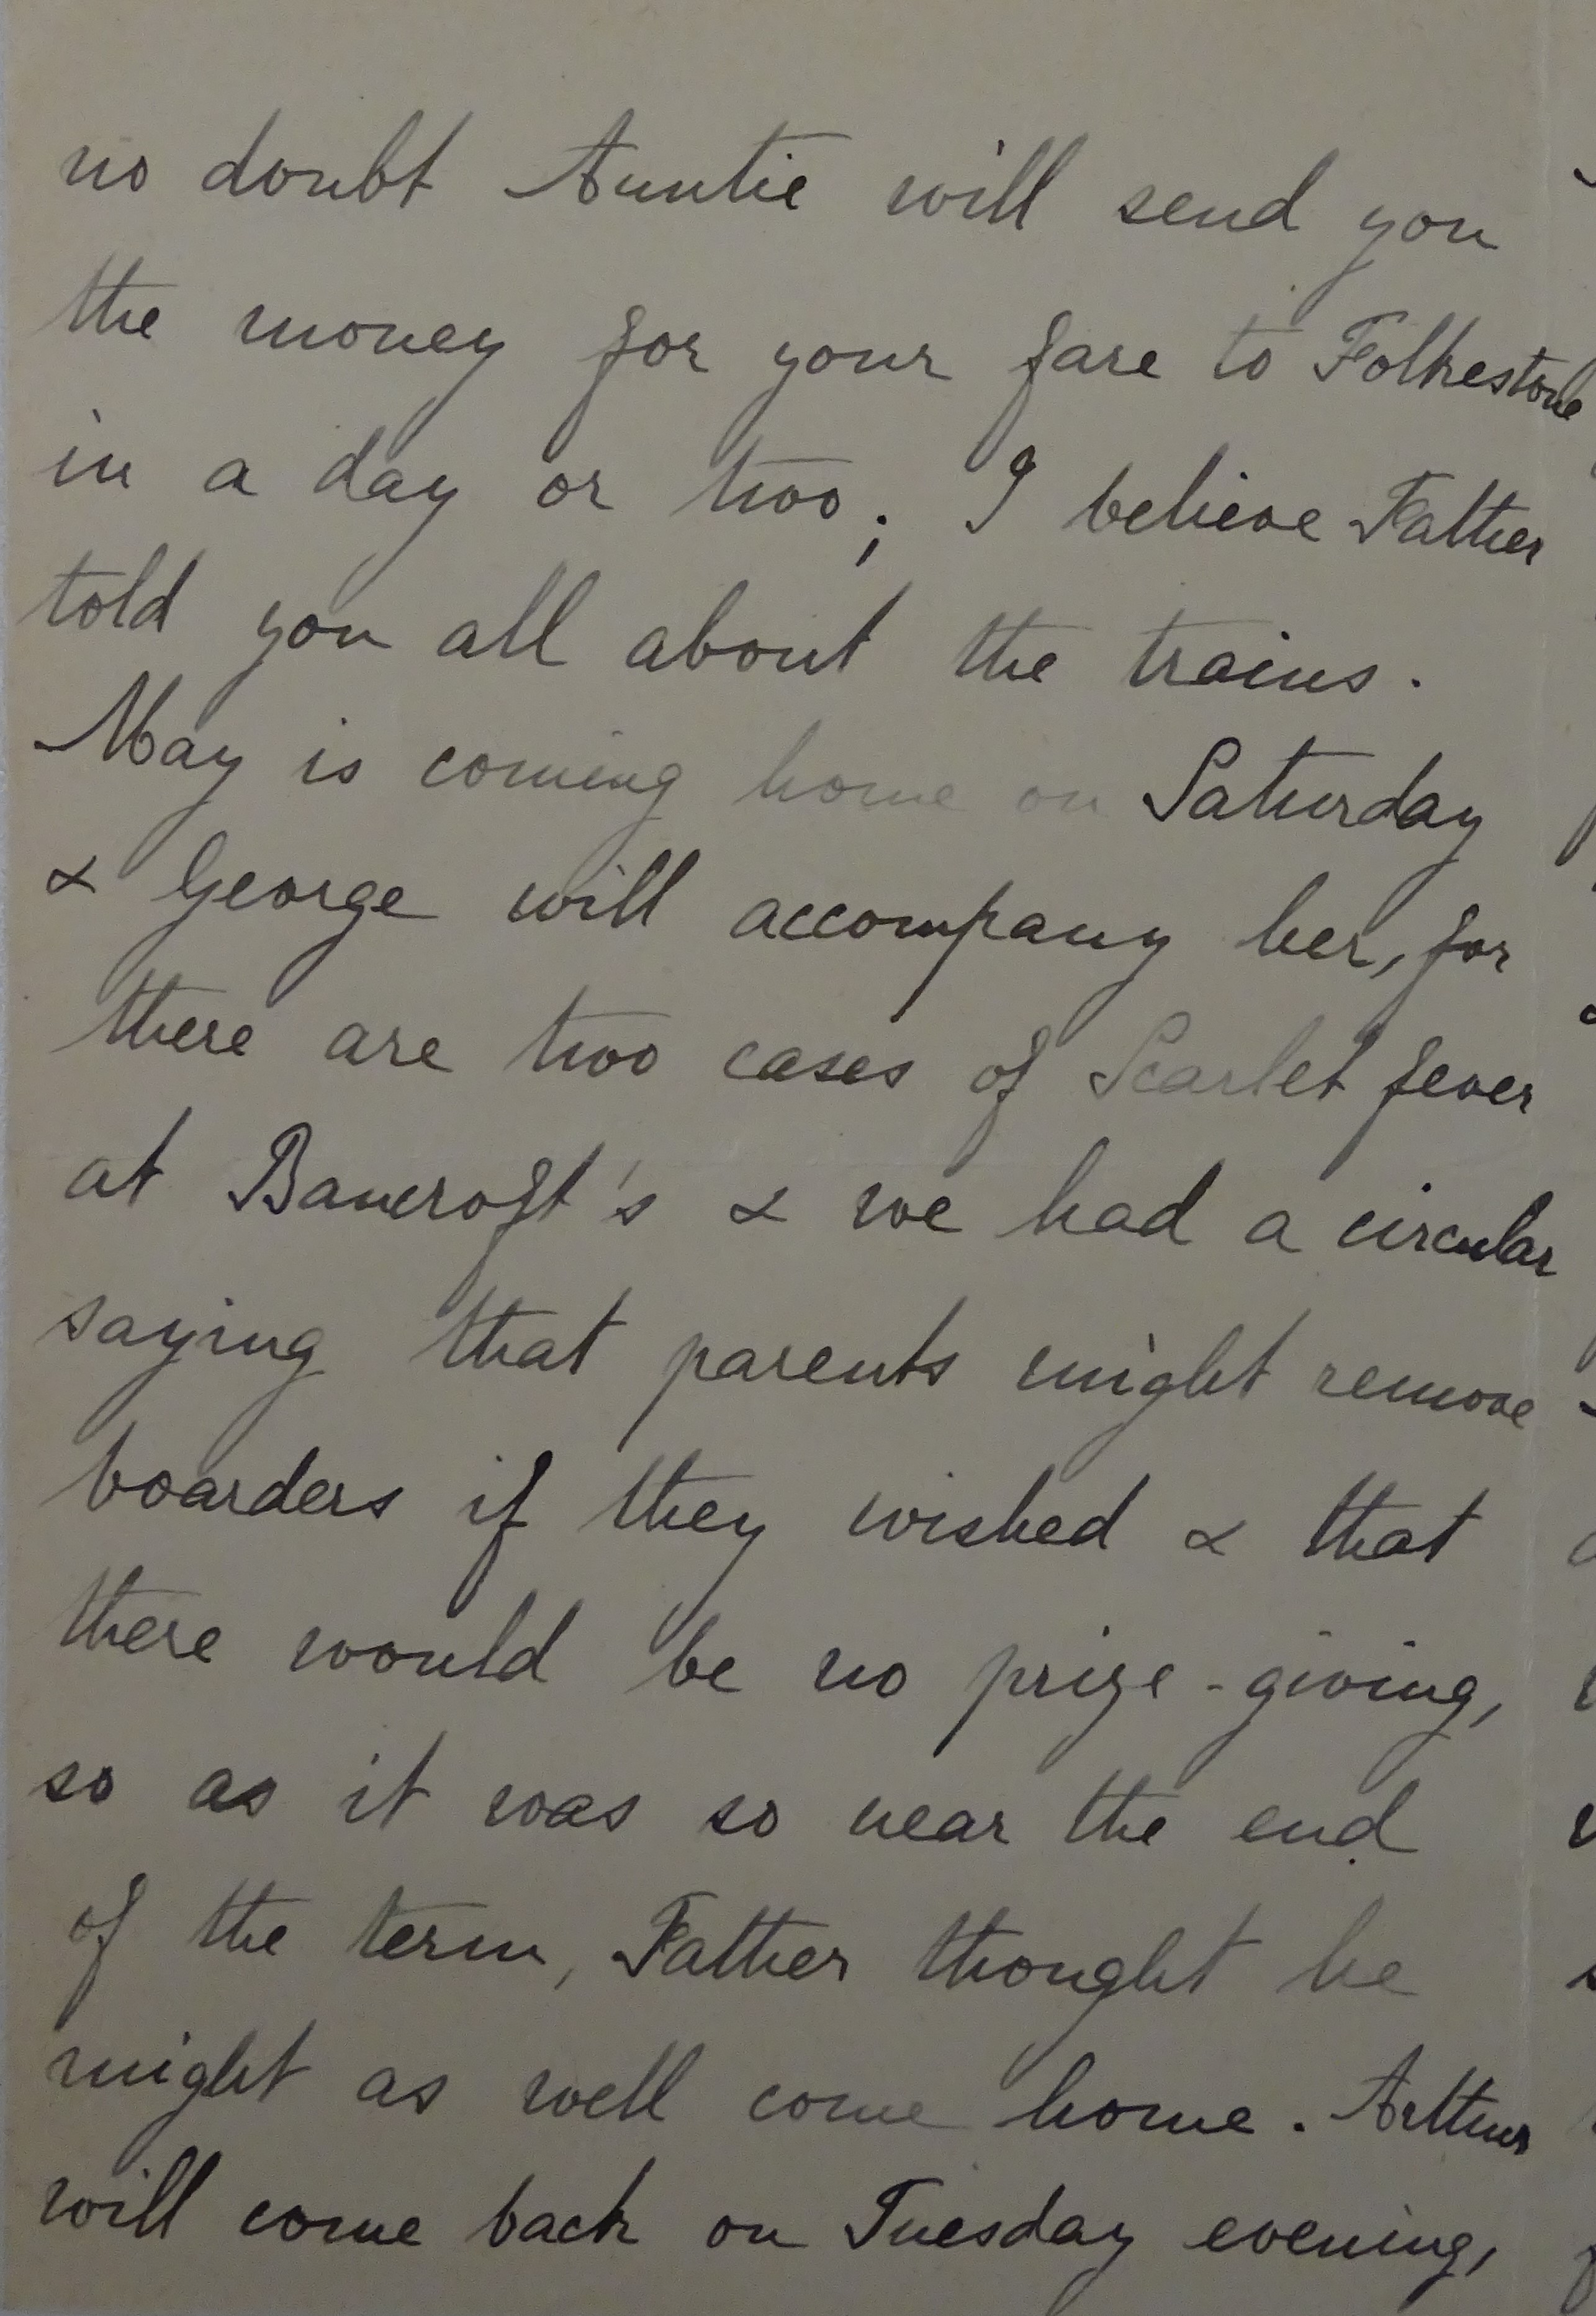 no doubt Auntie will send you
the money for your fare to Folkestone
in a day or two; I believe Father
told you all about the trains.
May is coming home on Saturday
& George will accompany her, for
there are two cases of Scarlet fever
at Bancroft's & we had a circular
saying that parents might remove
boarders if they wished & that
there would be no prize-giving,
so as it was so near the end
of the term, Father thought he
might as well come home. Arthur
will come back on Tuesday evening,